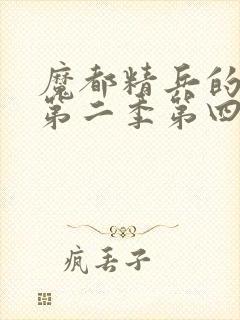 魔都精兵的
第二季第四
疯丢子